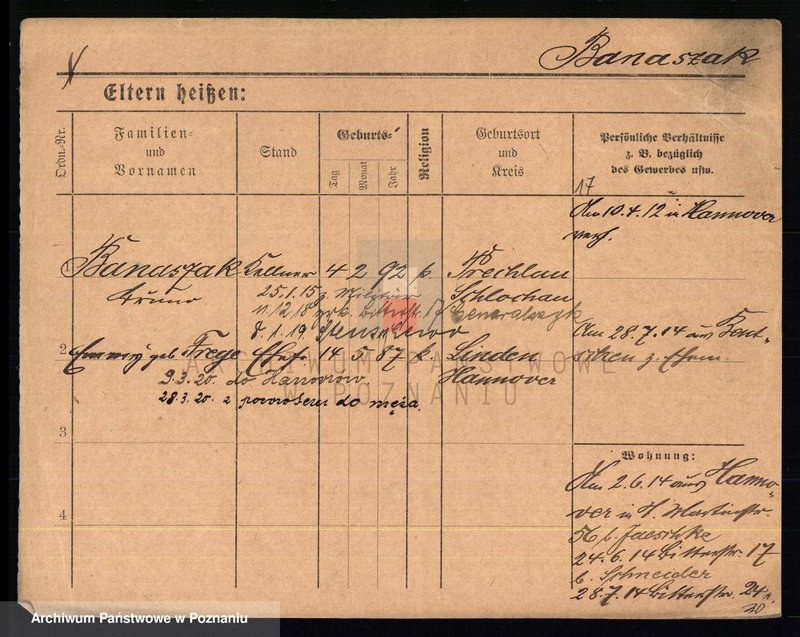 Banaszak
Eltern heißen:
Ordn.-Nr.
Familien-
und
Vornamen
Stand
Geburts-
Tag
Monat
Jahr
Religion
Geburtsort
und
Kreis
Persönliche Verhältnisse
z. B. bezüglich
des Gewerbes usw.
17
Am 10.4.12 in Hannover
verh.
1
Banaszak Kellner 4 2 92 k. Prechlau
Bruno
25.1.15 z. Militär Schlochau
11.12.18 Bitterstr. 17
8.1.19
Am 28.7.14 aus Bent-
schen z. Ehem.
2
Emmy geb. Freye Ehefr 14 5 87 k. Linden
9.3.20. do Hannover Hannover
28.3.20. z powrotem do męża.
3
Wohnung:
Am 2.6.14 aus Hanno-
ver in St. Martinstr.
56 b. Jaeschke
4
24.6.14 Bitterstr. 17
b. Schneider
28.7.14 Bitterstr. 24
ARCHIWUM PAŃSTWOWE
W POZNANIU
Archiwum Państwowe w Poznaniu